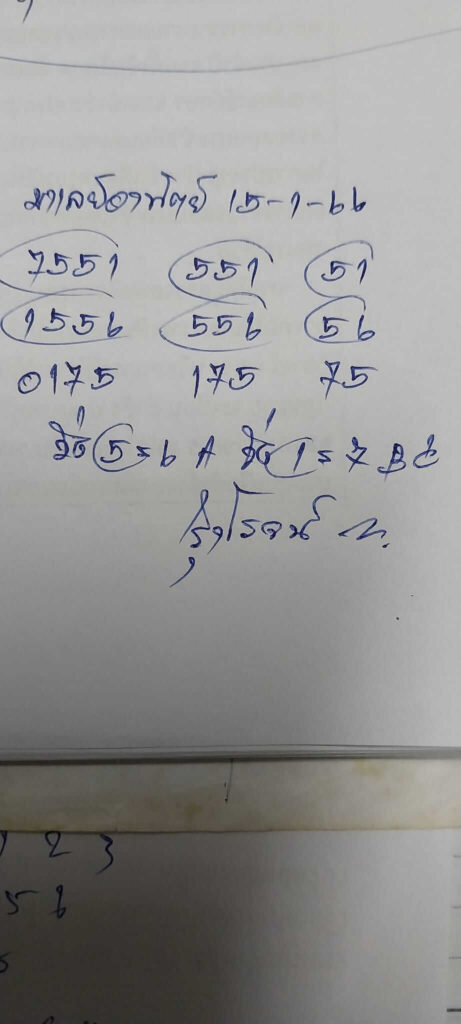 มาเลย์อาทิตย์ 15-1-66
7551 551 51
1556 556 56
0175 175 75
วิ่ง 5=6 A วิ่ง 1=7 B C
รุ่งโรจน์
1 2 3
5 6